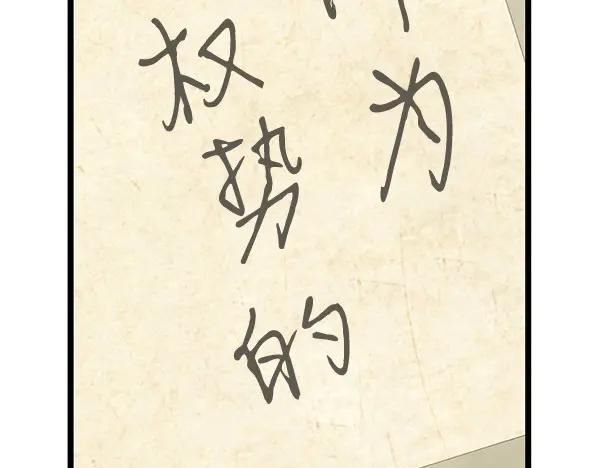 为
权势的